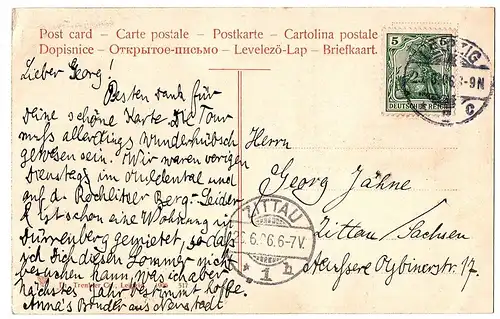 Post card - Carte postale - Postkarte - Cartolina postale
Dopisnice - Открытое-письмо - Levelezö-Lap - Briefkaart.
5 5
DEUTSCHES REICH
LEIPZIG
8-9N
Lieber Georg!
Besten Dank für
Deine schöne Karte. Die Tour
muss allerdings wunderhübsch
gewesen sein. Wir waren vorigen
Dienstag im Muldental und
auf d. Rochlitzer Berg. Leider
ist schon eine Wohnung in
Dürrenberg gemietet, sodaß
ich Dich diesen Sommer nicht
besuchen kann, was ich aber
nächstes Jahr bestimmt hoffe.
Anna's Bruder aus Neustadt.
Herrn
Georg Jähne
Zittau / Sachsen
Aeussere Oybinerstr. 17.
ZITTAU
6.06.6-7V.
* 1 b
Trenkler Co., Leipzig